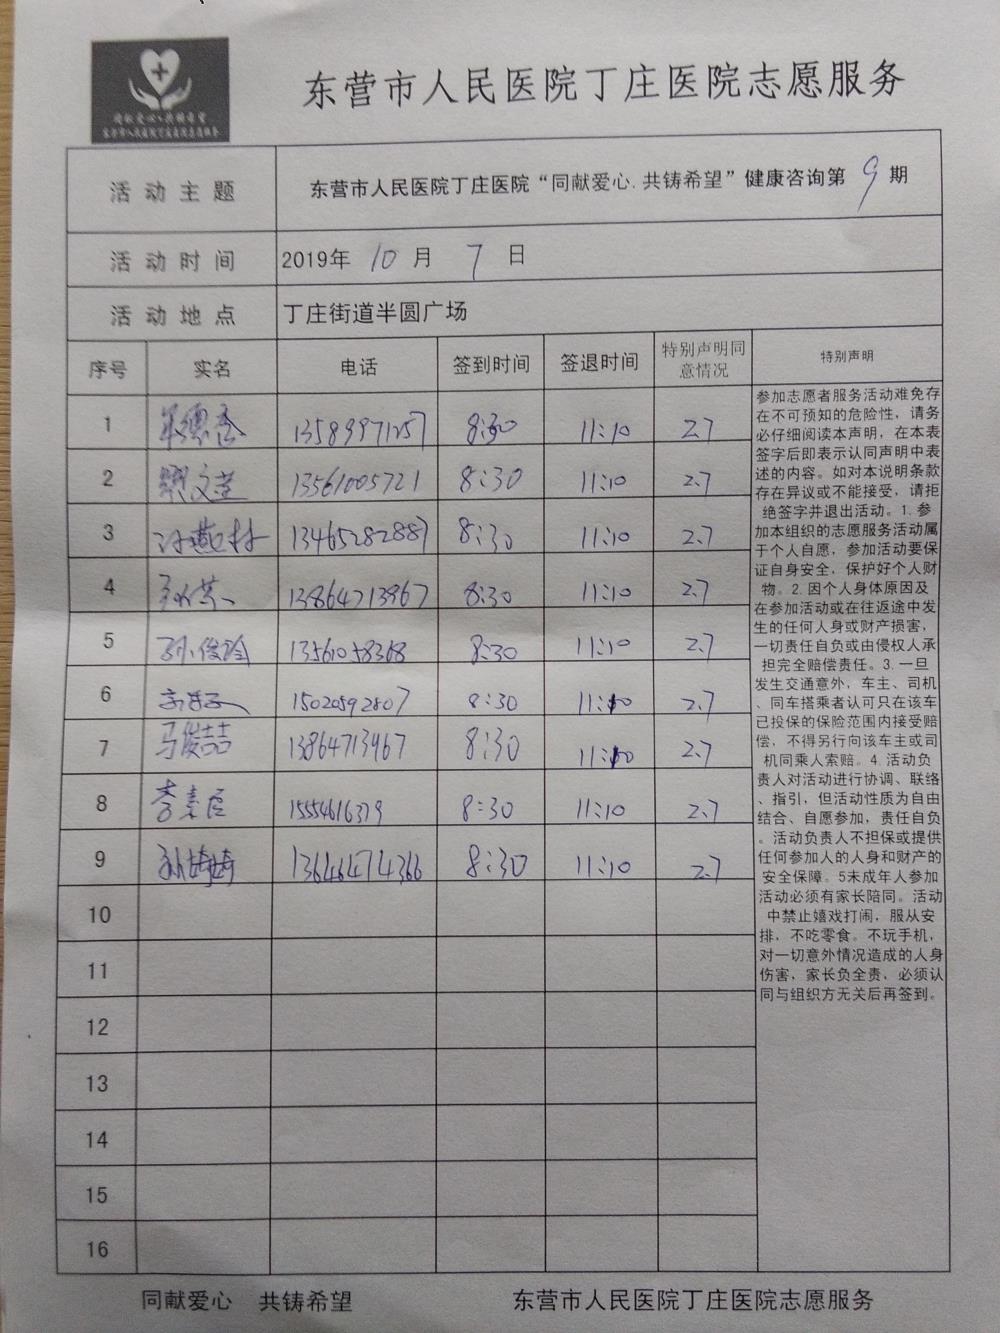 同献爱心、共铸希望
东营市人民医院丁庄医院志愿服务
东营市人民医院丁庄医院志愿服务
活动主题 东营市人民医院丁庄医院“同献爱心.共铸希望”健康咨询第9期
活动时间 2019年10月7日
活动地点 丁庄街道半圆广场
序号 实名 电话 签到时间 签退时间 特别声明同意情况 特别声明
1 8:30 11:10 2.7
2 13561005721 8:30 11:10 2.7
3 13465282887 8:30 11:10 2.7
4 13864713967 8:30 11:10 2.7
5 孙俊玲 13561058368 8:30 11:10 2.7
6 15020592807 8:30 11:10 2.7
7 马俊喆 13864713967 8:30 11:10 2.7
8 李素臣 15554616379 8:30 11:10 2.7
9 孙婷婷 13646474366 8:30 11:10 2.7
10
11
12
13
14
15
16
参加志愿者服务活动难免存
在不可预知的危险性，请务
必仔细阅读本声明，在本表
签字后即表示认同声明中表
述的内容。如对本说明条款
存在异议或不能接受，请拒
绝签字并退出活动。1.参
加本组织的志愿服务活动属
于个人自愿，参加活动要保
证自身安全，保护好个人财
物。2.因个人身体原因及
在参加活动或在往返途中发
生的任何人身或财产损害，
一切责任自负或由侵权人承
担完全赔偿责任。3.一旦
发生交通意外，车主、司机
、同车搭乘者认可只在该车
已投保的保险范围内接受赔
偿，不得另行向该车主或司
机同乘人索赔。4.活动负
责人对活动进行协调、联络
、指引，但活动性质为自由
结合、自愿参加，责任自负
。活动负责人不担保或提供
任何参加人的人身和财产的
安全保障。5未成年人参加
活动必须有家长陪同。活动
中禁止嬉戏打闹，服从安
排，不吃零食。不玩手机，
对一切意外情况造成的人身
伤害，家长负全责，必须认
同与组织方无关后再签到。
同献爱心 共铸希望 东营市人民医院丁庄医院志愿服务